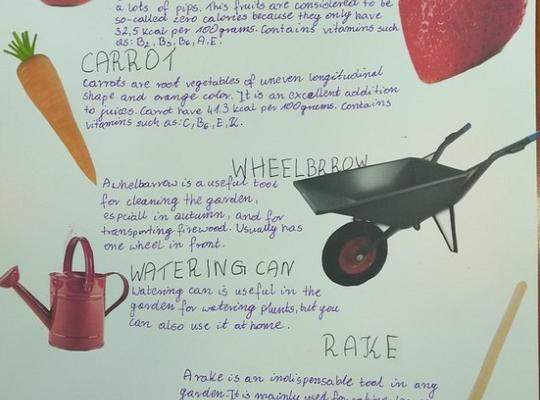 a lots of pips. This fruits are considered to be
so-called zero calories because they only have
32,5 kcal per 100 grams. Contains vitamins such
as: B1, B3, B6, A, E.
CARROT
Carrots are root vegetables of uneven longitudinal
shape and orange color. It is an excellent addition
to juices. Carrot have 41.3 kcal per 100 grams. Contains
vitamins such as: C, B6, E, K.
WHEELBRROW
A whelbarrow is a useful tool
for cleaning the garden,
especiall in autumn, and for
transporting firewood. Usually has
one wheel in front.
WATERING CAN
Watering can is useful in the
garden for watering plants, but you
can also use it at home.
RAKE
A rake is an indispensable tool in any
garden. It is mainly used for raking